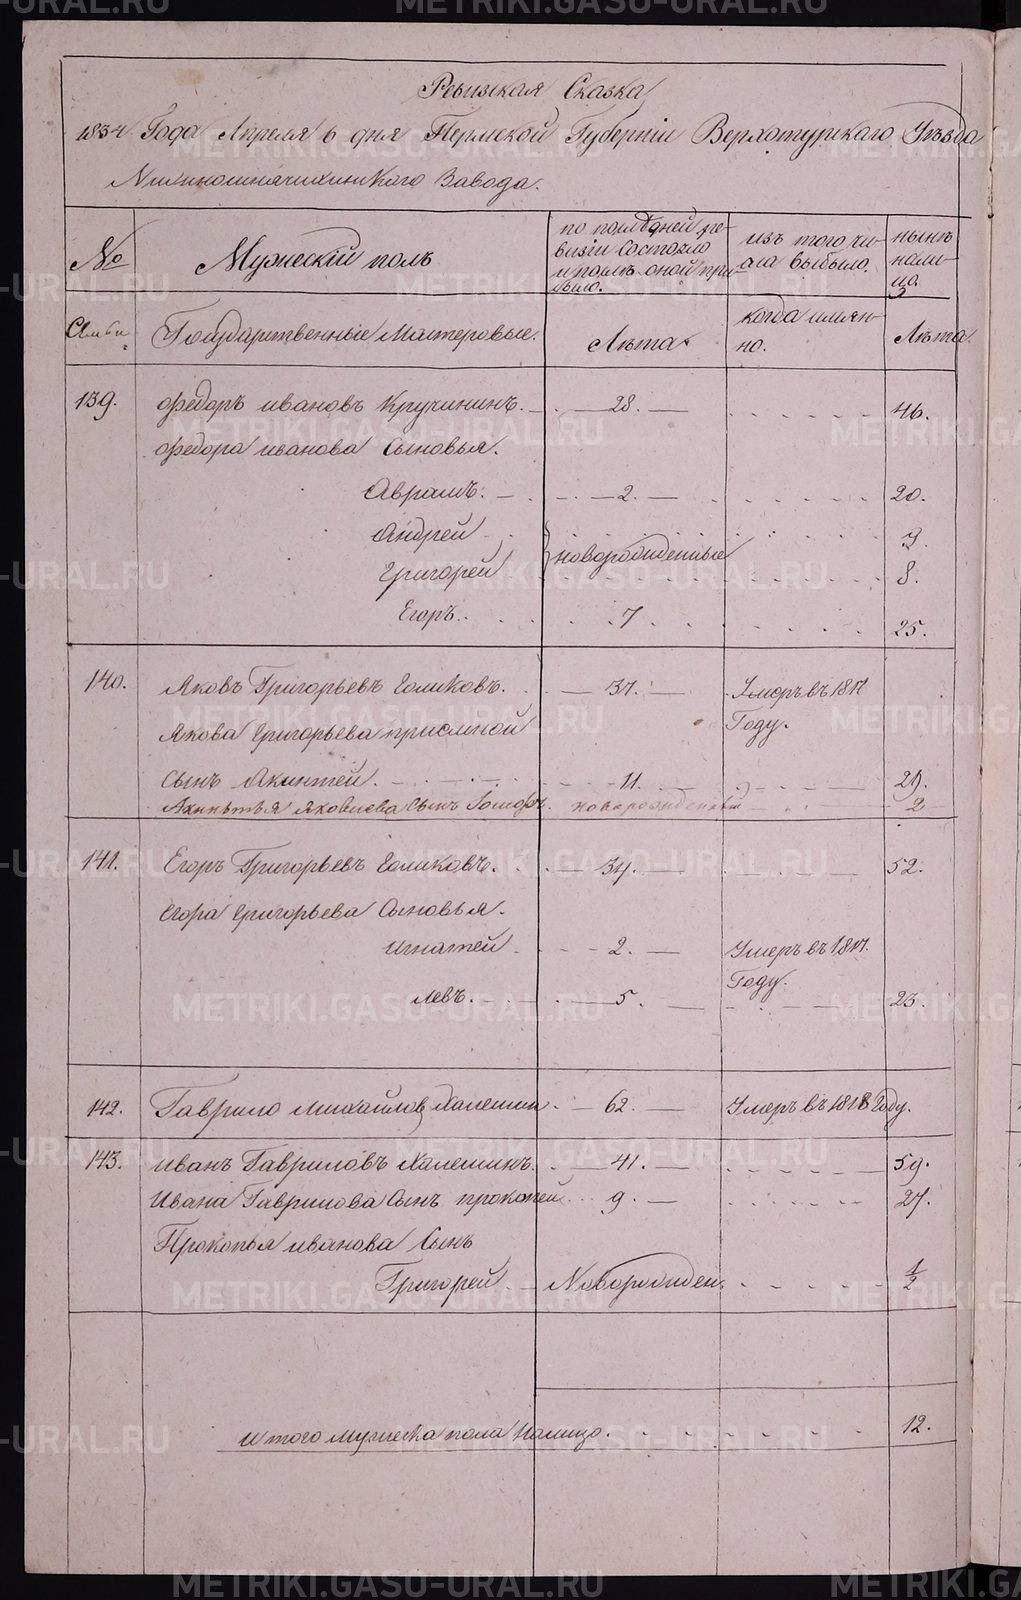 Ревизская Сказка
1834 Года Апреля 6 дня Пермской Губернiи Верхотурскаго Уѣзда
Завода.
№ Мужескiй полъ
по последней ре-
визiи состояло
и послѣ оной при-
было.
изъ того чи-
сла выбыло.
нынѣ
нали-
цо.
Семьи
Государственные Мастеровые.
Лѣта
когда имян-
но.
Лѣта.
139. Федоръ Ивановъ Кручининъ. 28. 46.
Федора Иванова Сыновья.
Аврамъ. 2. 20.
Андрей новорожденные 9.
Григорей 8.
Егоръ. 7. 25.
140. Яковъ Григорьевъ Голиковъ. 37. Умеръ въ 1817
Году.
Якова Григорьева приемной
Сынъ Акинтей. 11. 29.
Акинтья Яковлева Сынъ новорожденный 2
141. Егоръ Григорьевъ Голиковъ. 34. 52.
Егора Григорьева Сыновья.
Игнатей 2. Умеръ въ 1817.
Году.
левъ. 5. 23.
142. Гаврило Михайлов Халемин. 62. Умеръ въ 1818 Году.
143. Иванъ Гавриловъ Халеминъ. 41. 59.
Ивана Гаврилова Сынъ прокопей 9. 27.
Прокопья иванова Сынъ
Григорей Новорожден. 1/2
Итого Мужеска пола Налицо. 12.
METRIKI.GASO-URAL.RU